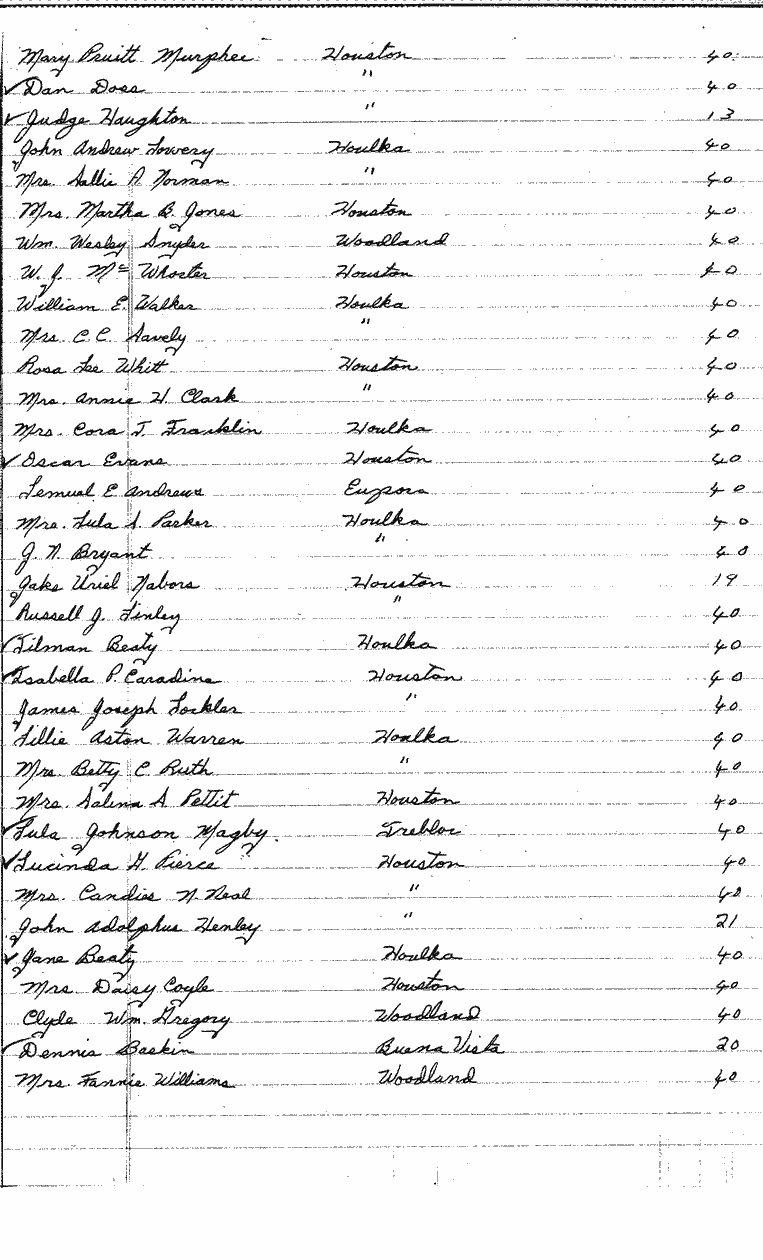 Mary Pruitt Murphee Houston 40
✓ Dan Doss " 40
✓ Judge Haughton " 13
John Andrew Lowery Houlka 40
Mrs. Sallie A Norman " 40
Mrs. Martha B. Jones Houston 40
Wm. Wesley Snyder Woodland 40
W. J. Mc Whorter Houston 40
William E. Walker Houlka 40
Mrs. C. C. Savely " 40
Rosa Lee Whitt Houston 40
Mrs. Annie H. Clark " 40
Mrs. Cora T. Franklin Houlka 40
✓ Oscar Evans Houston 40
Lemuel E Andrews Eupora 40
Mrs. Lula S. Parker Houlka 40
J. N. Bryant " 40
Jake Uriel Nabors Houston 19
Russell J. Finley " 40
✓ Tilman Beaty Houlka 40
✓ Isabella P. Caradine Houston 40
James Joseph Lockler " 40
Lillie Aston Warren Houlka 40
Mrs. Betty C. Ruth " 40
Mrs. Salena A Pettit Houston 40
✓ Lula Johnson Magby. Trebloc 40
✓ Lucinda H. Pierce Houston 40
Mrs. Candies N. Neal " 40
John Adolphus Henley " 21
✓ Jane Beaty Houlka 40
Mrs. Daisy Coyle Houston 40
Clyde Wm. Gregory Woodland 40
✓ Dennis Baskin Buena Vista 20
Mrs. Fannie Williams Woodland 40